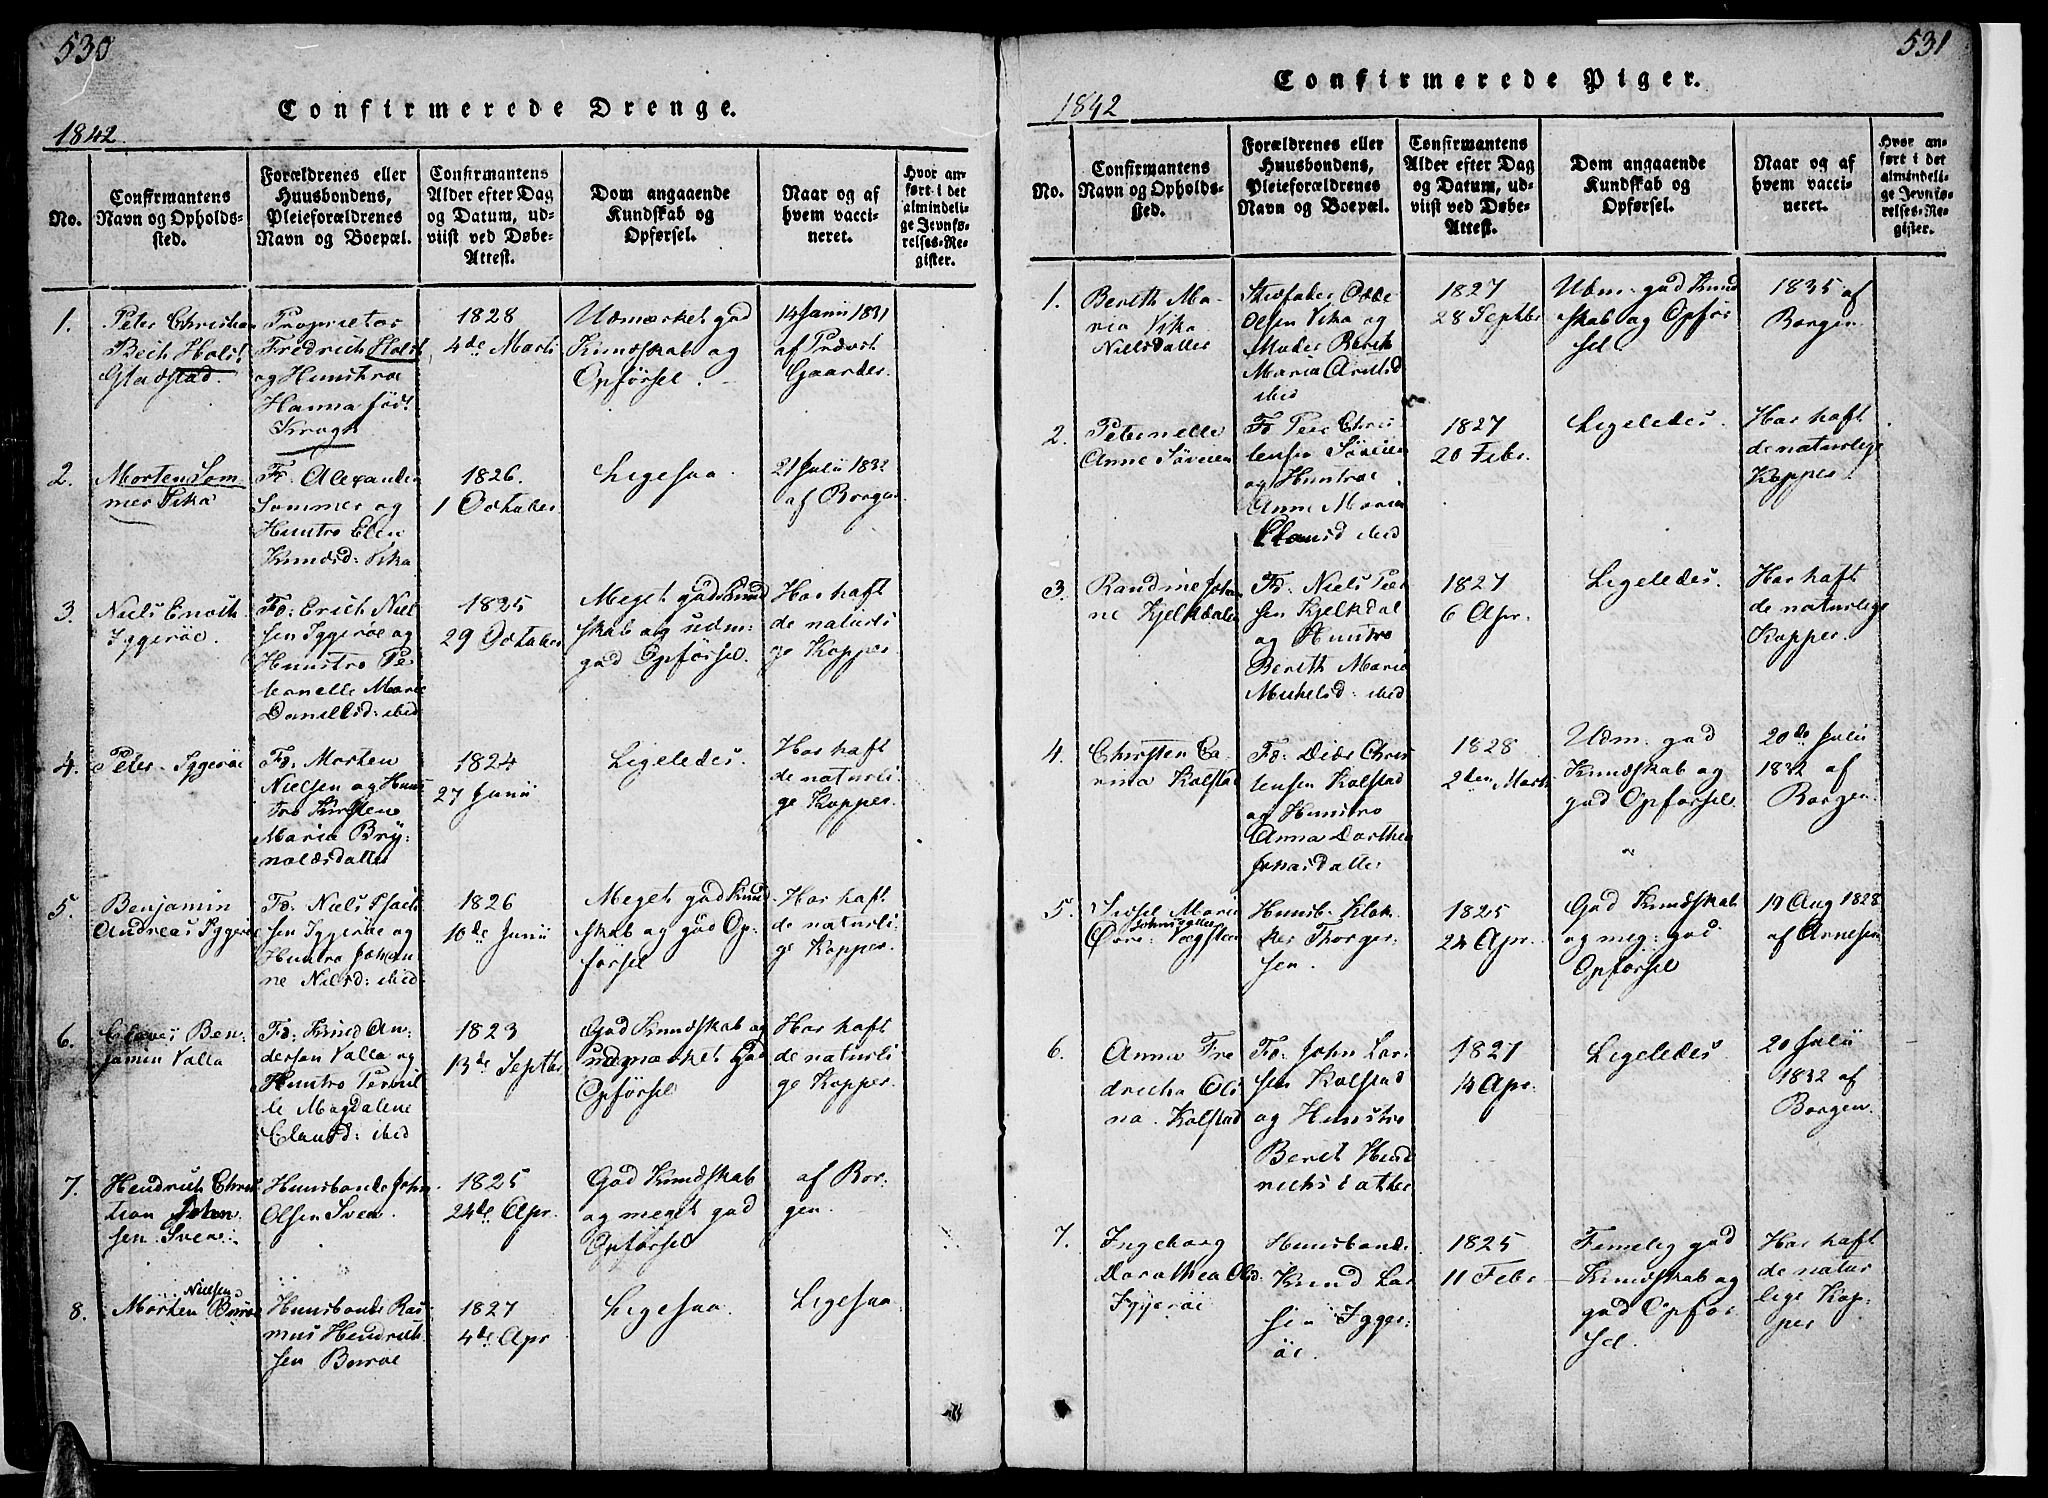 530
Confirmerede Drenge.
1842.
No.
Confirmantens
Navn og Opholds-
sted.
Forældrenes eller
Huusbondens,
Pleieforældrenes
Navn og Boepæl.
Confirmantens
Alder efter Dag
og Datum, ud-
viist ved Døbe-
Attest.
Dom angaaende
Kundskab og
Opførsel.
Naar og af
hvem vacci-
neret.
Hvor an-
ført i det
almindeli-
ge Jevnfø-
relses-Re-
gister.
1.
Peter Christian
Bech Holst
Gladstad.
Proprietær
Fredrich Holst
og Huustroe
Hanna født
Krogh
1828
4de Marti
Udmærket god
Kundskab og
Opførsel.
14 Junii 1831
af Provst
Gaarder.
2.
Morten Som
mer Vika
Fr. Alexander
Sommer og
Huustro Elen
Knudsd: Vika
1826.
1 October
Ligesaa.
21 Julii 1832
af Borgen
3.
Niels Enoch
Iggerøe.
Fr: Erich Niel
sen Iggerøe og
Huustro Pe
tronelle Marie
Danielsd: ibid
1825
29 October
Meget god Kund
skab og udm.
god Opførsel.
Har haft
de naturli
ge Kopper.
4.
Peter Iggerøe
Fr: Morten
Nielsen og Huus
tro Kirsten
Maria Bry:
noldsdatter
1824
27 Junii
Ligeledes.
Har haft
de naturli:
ge Kopper.
5.
Benjamin
Andreas Iggerøe
Fr: Niels
sen Iggerøe og
Huustro Johan
ne Nielsd: ibid
1826
10de Junii
Meget god Kund
skab og god Op-
førsel
Har haft
de naturli-
ge Kopper.
6.
Ben-
jamin Valla
Fr: Knud An:
dersen Valla og
Huustro Pernil
le Magdalene
Clausd: ibid
1823
13de Septbr
God Kundskab og
udmærket God
Opførsel
Har haft
de naturli
ge Kopper.
7.
Hendrich Chris
tian John
sen Sven.
Huusbonde John
Olsen Sven.
1825
24de Apr.
God Kundskab
og meget god
Opførsel
af Bor-
gen.
8.
Nielsen
Morten Burøe
Huusbonde Ras
mus Hendrich
sen Burøe
1827
4de Apr
Ligesaa.
Ligesaa.
531
Confirmerede Piger.
1842
No.
Confirmantens
Navn og Opholds-
sted.
Forældrenes eller
Huusbondens,
Pleieforældrenes
Navn og Boepæl.
Confirmantens
Alder efter Dag
og Datum, ud-
viist ved Døbe-
Attest.
Dom angaaende
Kundskab og
Opførsel.
Naar og af
hvem vacci-
neret.
Hvor an-
ført i det
almindeli-
ge Jevnfø-
relses-Re-
gister.
1.
Bereth Ma-
ria Vika
Nielsdatter
Stedfader Odde
Olsen Vika og
Moder Bereth
Maria Arntsd
ibid
1827
28 Septbr
Udm. god Kund
skab og Opfør
sel
1835 af
Borgen
2.
Peternelle
Anne Søveien
Fr Peie Chris
tensen Søveien
og Huustroe
Anne Maria
Clausd ibid
1827
20 Febr.
Ligeledes.
Har haft
de naturlige
Kopper.
3.
Randine Johan
ne Kjelkdalen
Fr: Niels Peer
sen Kjelkdal
og Huustro
Bereth Marie
Michelsd: ibid
1827
6 Apr.
Ligeledes.
Har haft
de naturlige
Kopper.
4.
Chirsten Ca-
rina Kolstad
Fr: Dide Chris
tensen Kolstad
og Huustro
Anna Dorthea
Jonasdatter
1828
2den Marti
Udm. god
Kundskab og
god Opførsel.
20de Julii
1832 af
Borgen
5.
Sissel Marie
Johnsdatter
Øvre Vaagsteen
Huusb. Klok-
ker Thorger-
sen.
1825
24 Apr.
God Kundskab
og meg: god
Opførsel
19 Aug 1828
af Arnesen
6.
Anna Fre
dricha Oli
na Kolstad
Fr: John Lar:
sen Kolstad
og Huustro
Beret Hend
richsdatter
1827
14 Apr.
Ligeledes
20 Julii
1832 af
Borgen.
7.
Ingeborg
Dorothea Olsd.
Iggerøe
Huusbonde
Knud Lar
sen Igger:
øe.
1825
11 Febr
Temelig god
Kundskab og
god Opfør
sel.
Har haft
de natur
lige Kop-
per